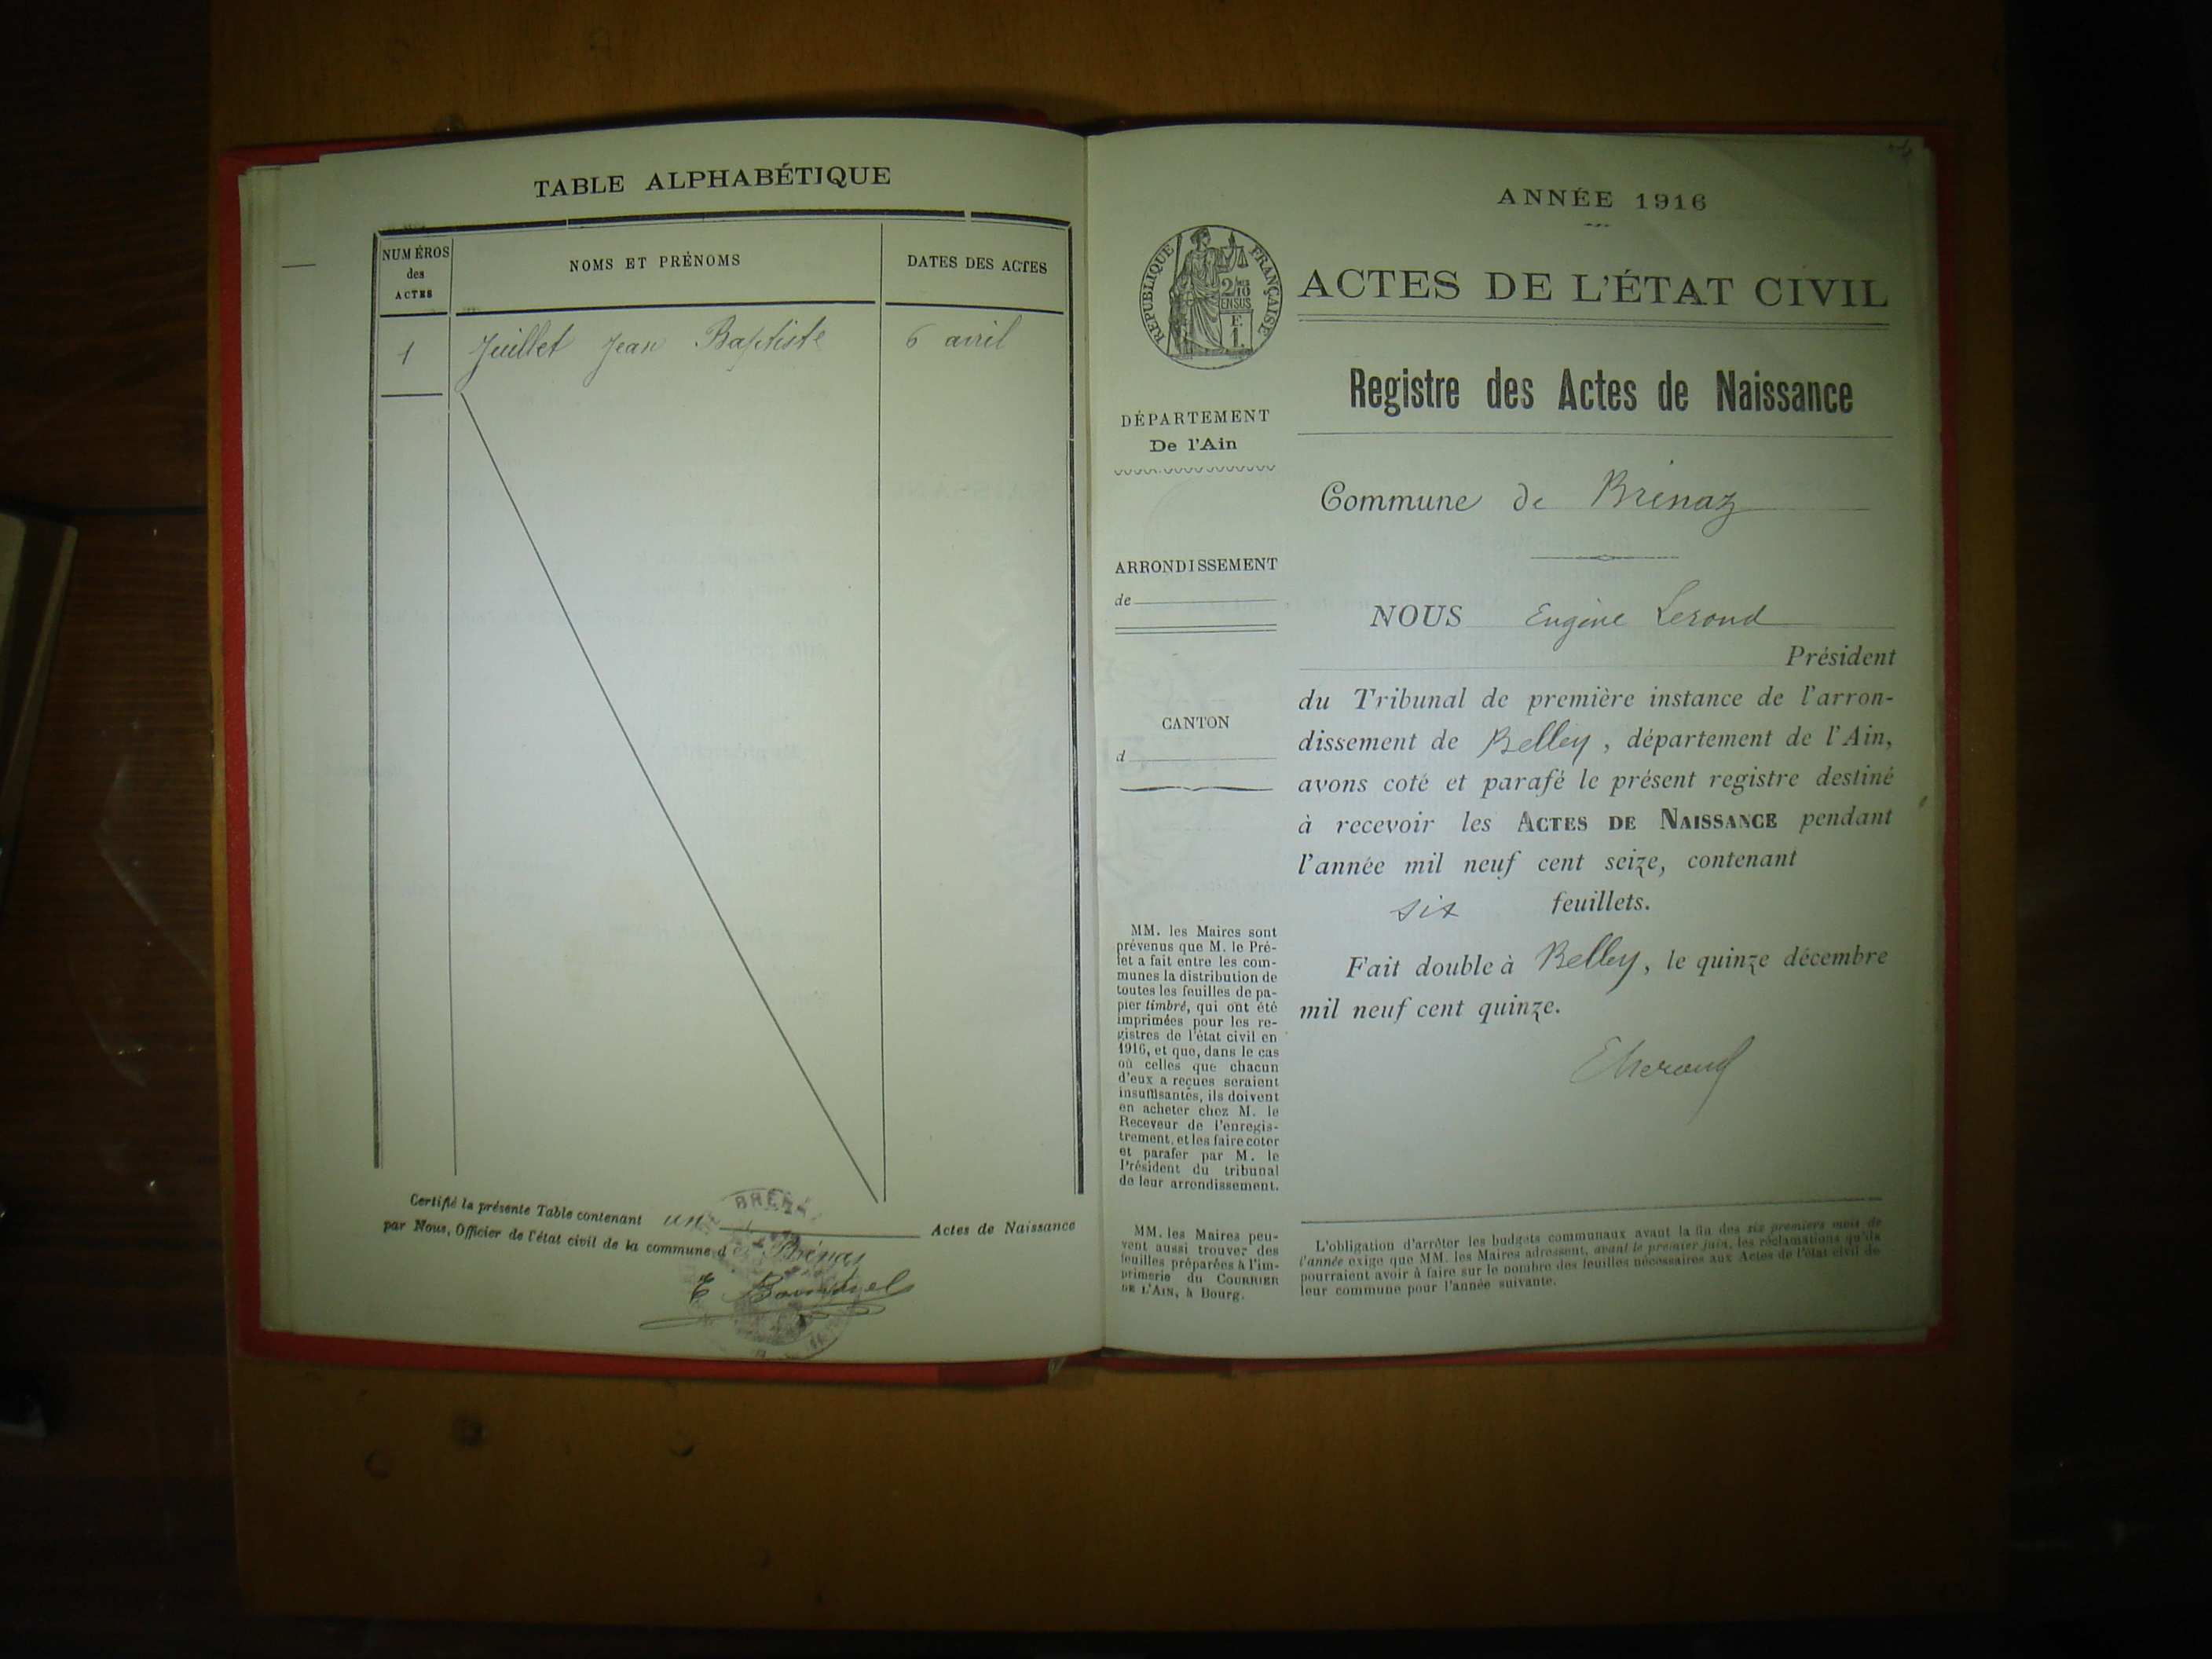 TABLE ALPHABÉTIQUE
NUMÉROS
des
ACTES
NOMS ET PRÉNOMS
DATES DES ACTES
1 Juillet Jean Baptiste 6 avril
Certifié la présente Table contenant un Actes de Naissance
par Nous, Officier de l'état civil de la commune de Brénaz
ANNÉE 1916
RÉPUBLIQUE FRANÇAISE
ACTES DE L'ÉTAT CIVIL
Registre des Actes de Naissance
DÉPARTEMENT
De l'Ain
ARRONDISSEMENT
de
CANTON
d
Commune de Brénaz
NOUS Eugène Lerond
Président
du Tribunal de première instance de l'arron-
dissement de Belley, département de l'Ain,
avons coté et parafé le présent registre destiné
à recevoir les ACTES DE NAISSANCE pendant
l'année mil neuf cent seize, contenant
six feuillets.
Fait double à Belley, le quinze décembre
mil neuf cent quinze.
MM. les Maires sont
prévenus que M. le Pré-
fet a fait entre les com-
munes la distribution de
toutes les feuilles de pa-
pier timbré, qui ont été
imprimées pour les re-
gistres de l'état civil en
1916, et que, dans le cas
où celles que chacun
d'eux a reçues seraient
insuffisantes, ils doivent
en acheter chez M. le
Receveur de l'enregis-
trement, et les faire coter
et parafer par M. le
Président du tribunal
de leur arrondissement.
MM. les Maires peu-
vent aussi trouver des
feuilles préparées à l'im-
primerie du COURRIER
DE L'AIN, à Bourg.
L'obligation d'arrêter les budgets communaux avant la fin des six premiers mois de
l'année exige que MM. les Maires adressent, avant le premier juin, les réclamations qu'ils
pourraient avoir à faire sur le nombre des feuilles nécessaires aux Actes de l'état civil de
leur commune pour l'année suivante.